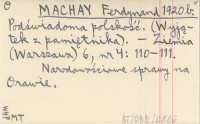 O MACHAY Ferdynand, 1920 b.
Podświadoma polskość. (Wyją-
tek z pamiętnika). — Ziemia
(Warszawa) 6, nr 4: 110-111.
Narodowościowe sprawy na
Orawie.
MT